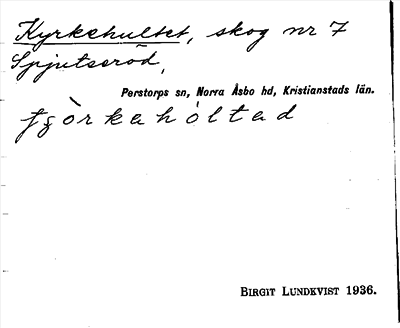 Kyrkehultet, skog nr 7
Spjutseröd,
Perstorps sn, Norra Åsbo hd, Kristianstads län.
tʒòrkahóltad
BIRGIT LUNDKVIST 1936.